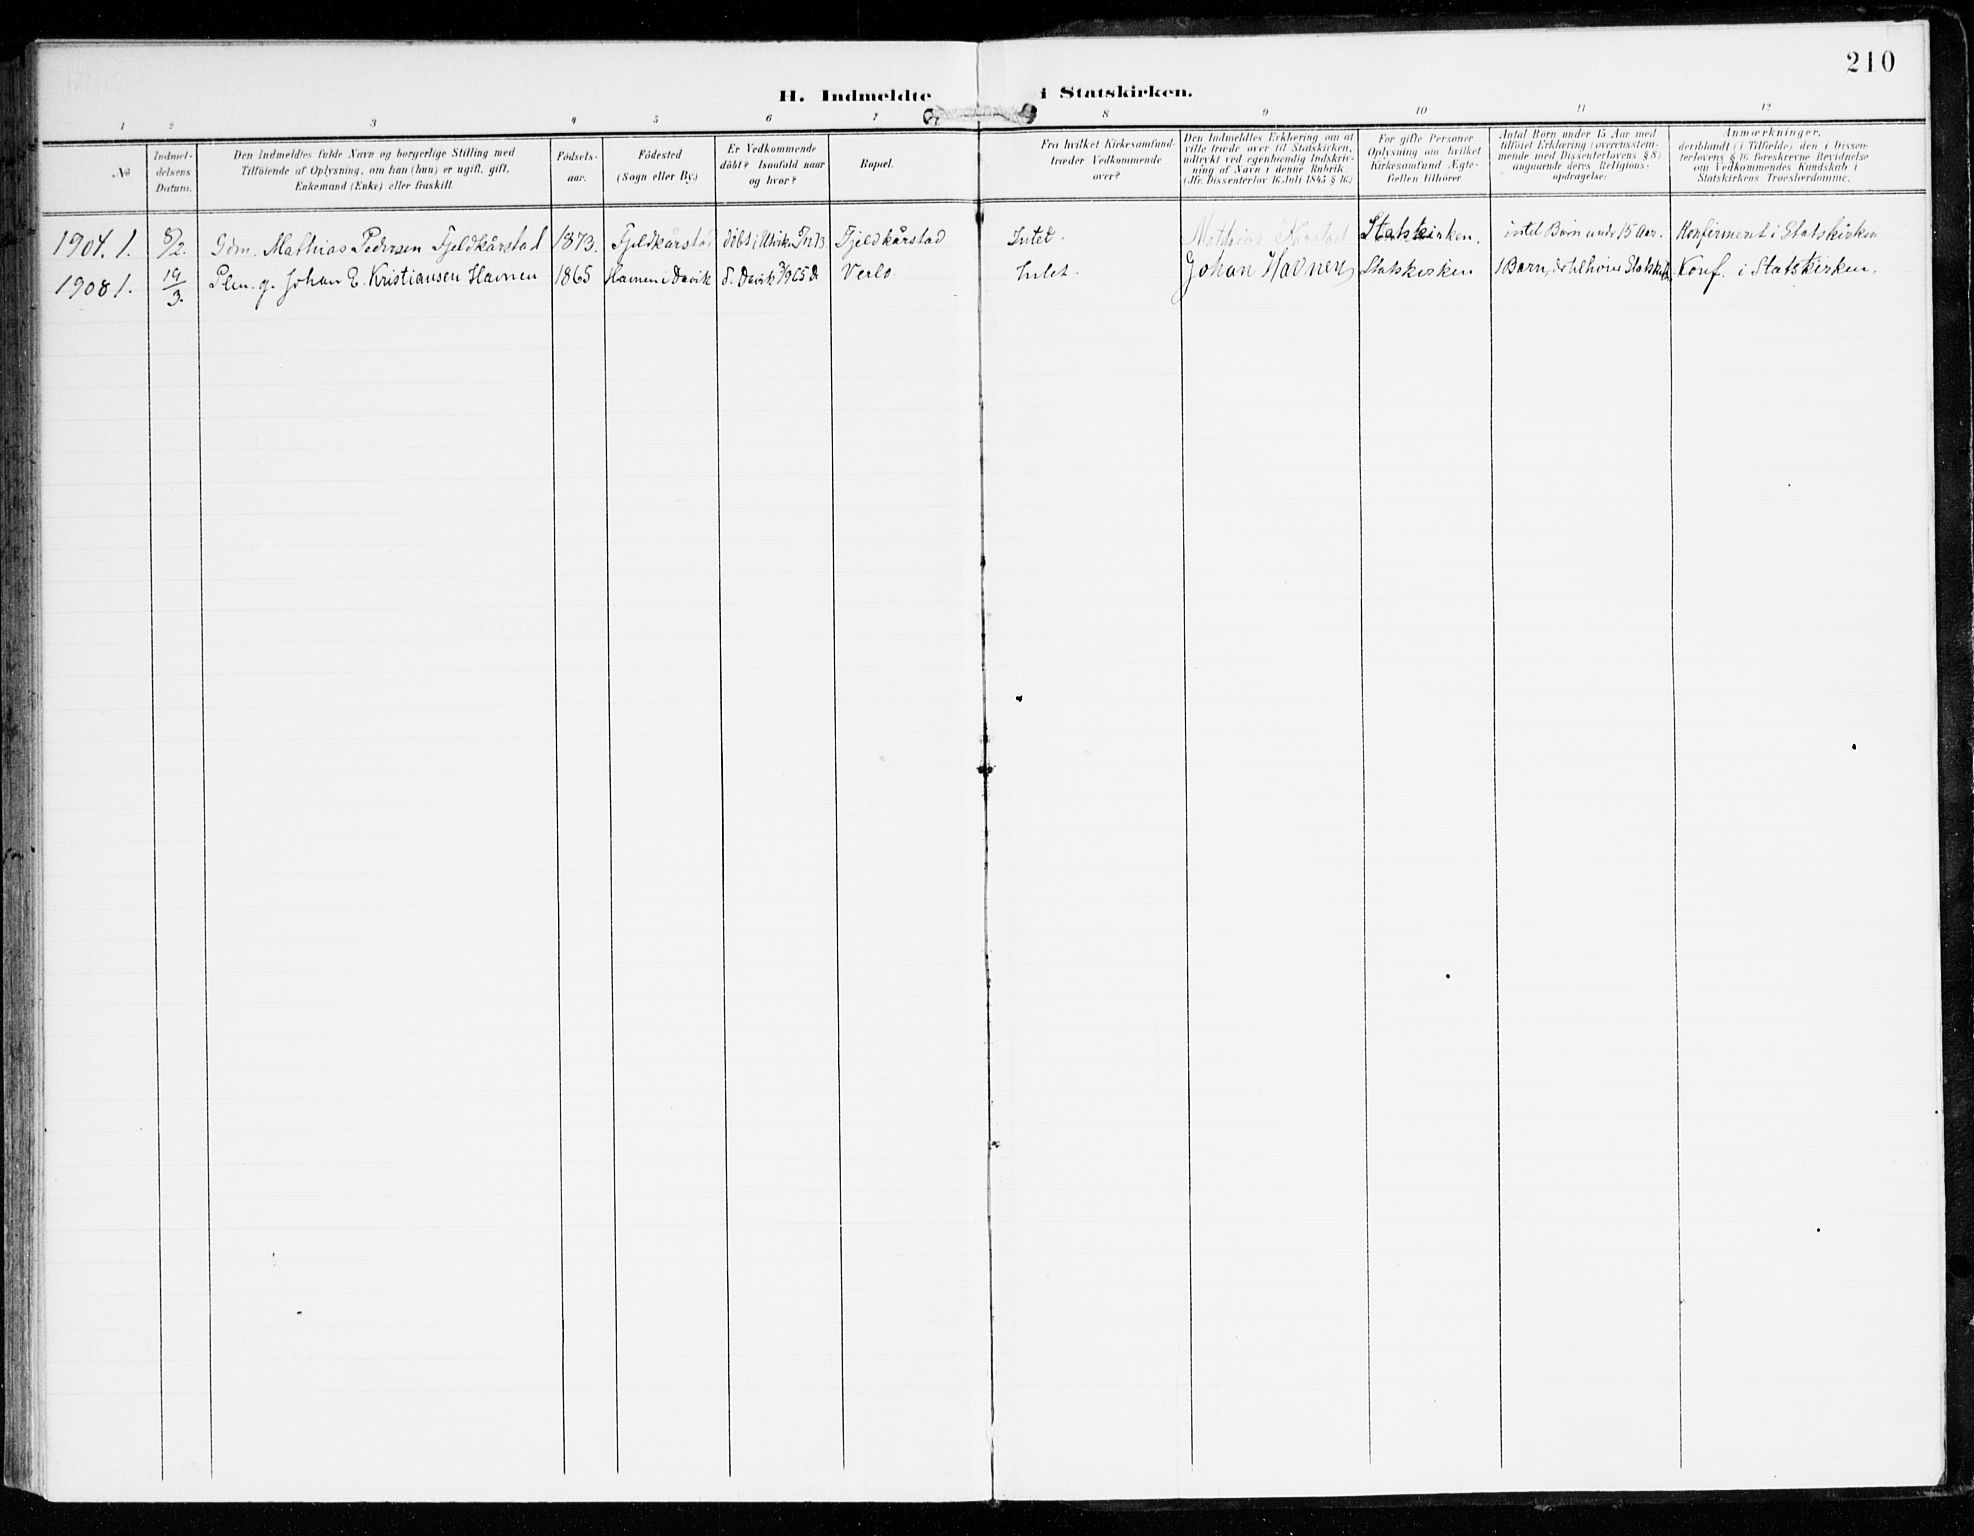 210
H. Indmeldte i Statskirken.
1 2 3 4 5 6 7 8 9 10 11 12
№
Indmel-
delsens
Datum.
Den Indmeldtes fulde Navn og borgerlige Stilling med
Tilföiende af Oplysning, om han (hun) er ugift, gift,
Enkemand (Enke) eller fraskilt.
Födsels-
aar.
Födested
(Sogn eller By.)
Er Vedkommende
döbt? Isaafald naar
og hvor?
Bopæl.
Fra hvilket Kirkesamfund
træder Vedkommende
over?
Den Indmeldtes Erklæring om at
ville træde over til Statskirken,
udtrykt ved egenhændig Indskriv-
ning af Navn i denne Rubrik.
(Jfr. Dissenterlov 16 Juli 1845 § 16.)
For gifte Personer
Oplysning om hvilket
Kirkesamfund Ægte-
fællen tilhörer.
Antal Börn under 15 Aar med
tilföiet Erklæring (overensstem-
mende med Dissenterlovens § 8)
angaaende deres Religions-
opdragelse.
Anmærkninger,
deriblandt (i Tilfælde) den i Dissen-
terlovens § 16 foreskrevne Bevidnelse
om Vedkommendes Kundskab i
Statskirkens Troesherdomme.
1904. 1. 8/2. Gdm. Mathias Pedersen Fjeldkårstad 1873. Fjeldkårstad döbt i Fjeldkårstad Intet. Mathias Kårstad Statskirken. intet Børn under 15 Aar. Konfirmeret i Statskirken
1908 1. 19/3. g. Johan E. Kristiansen Havnen 1865 Havnen i Davik d. Davik Verlo Intet. Johan Havnen Statskirken 1 Barn, Konf. i Statskirken.